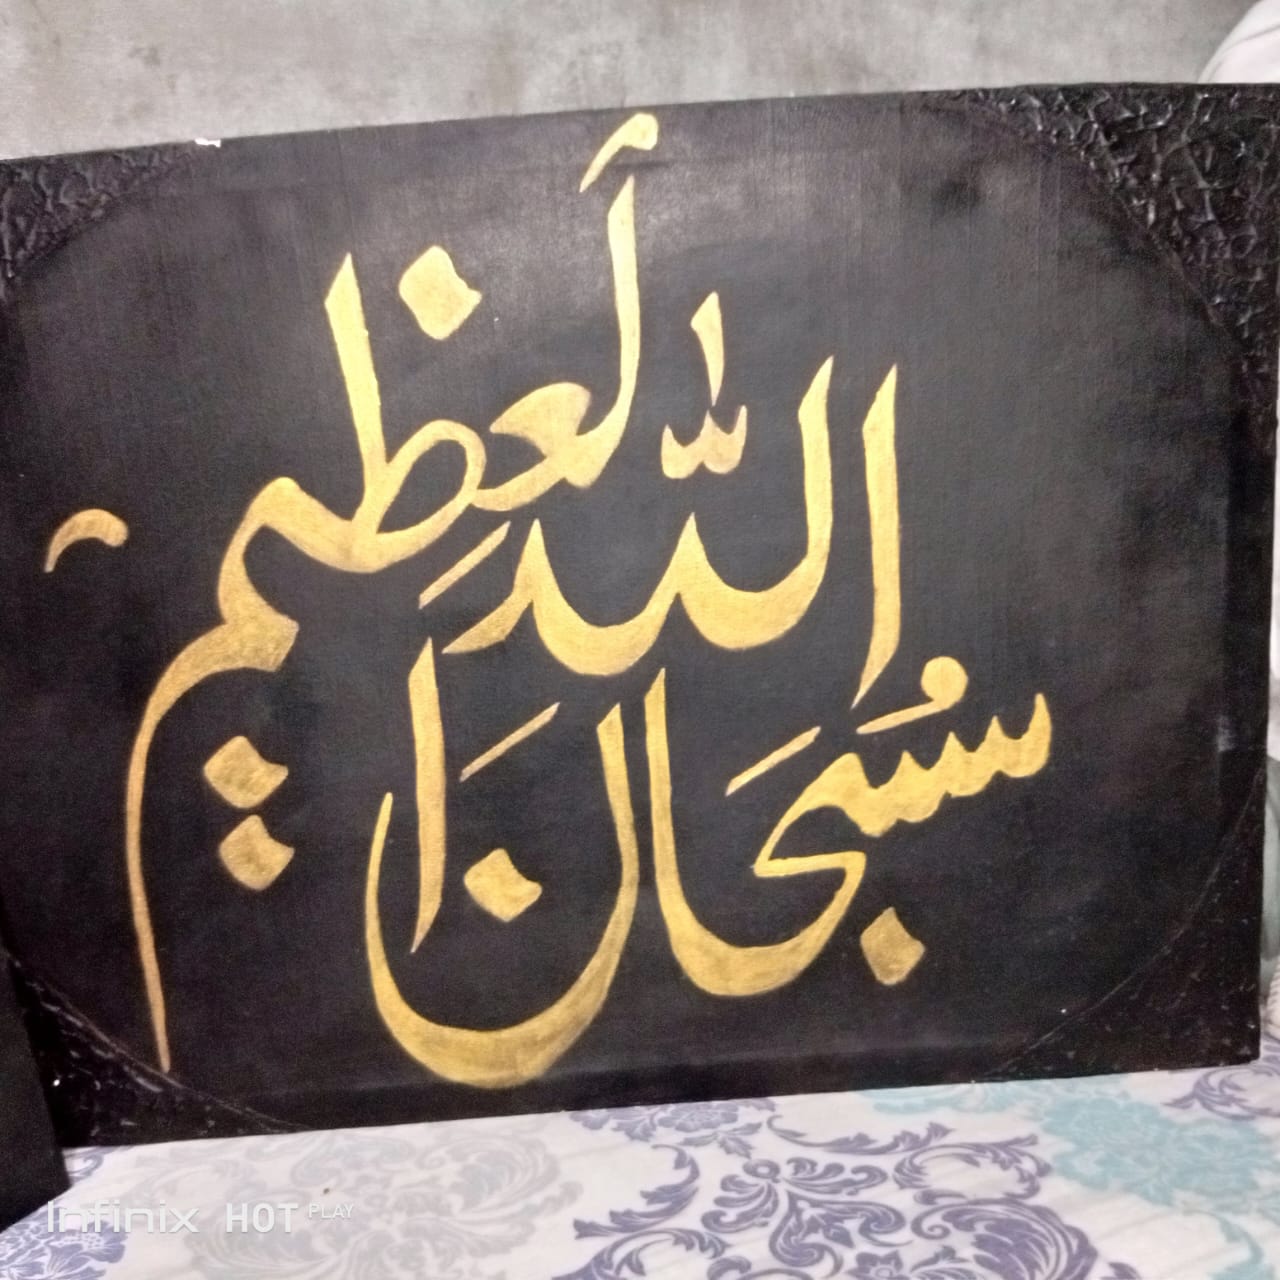 سُبحَانَ
اللّٰهِ
العَظِيمِ
Infinix HOT PLAY